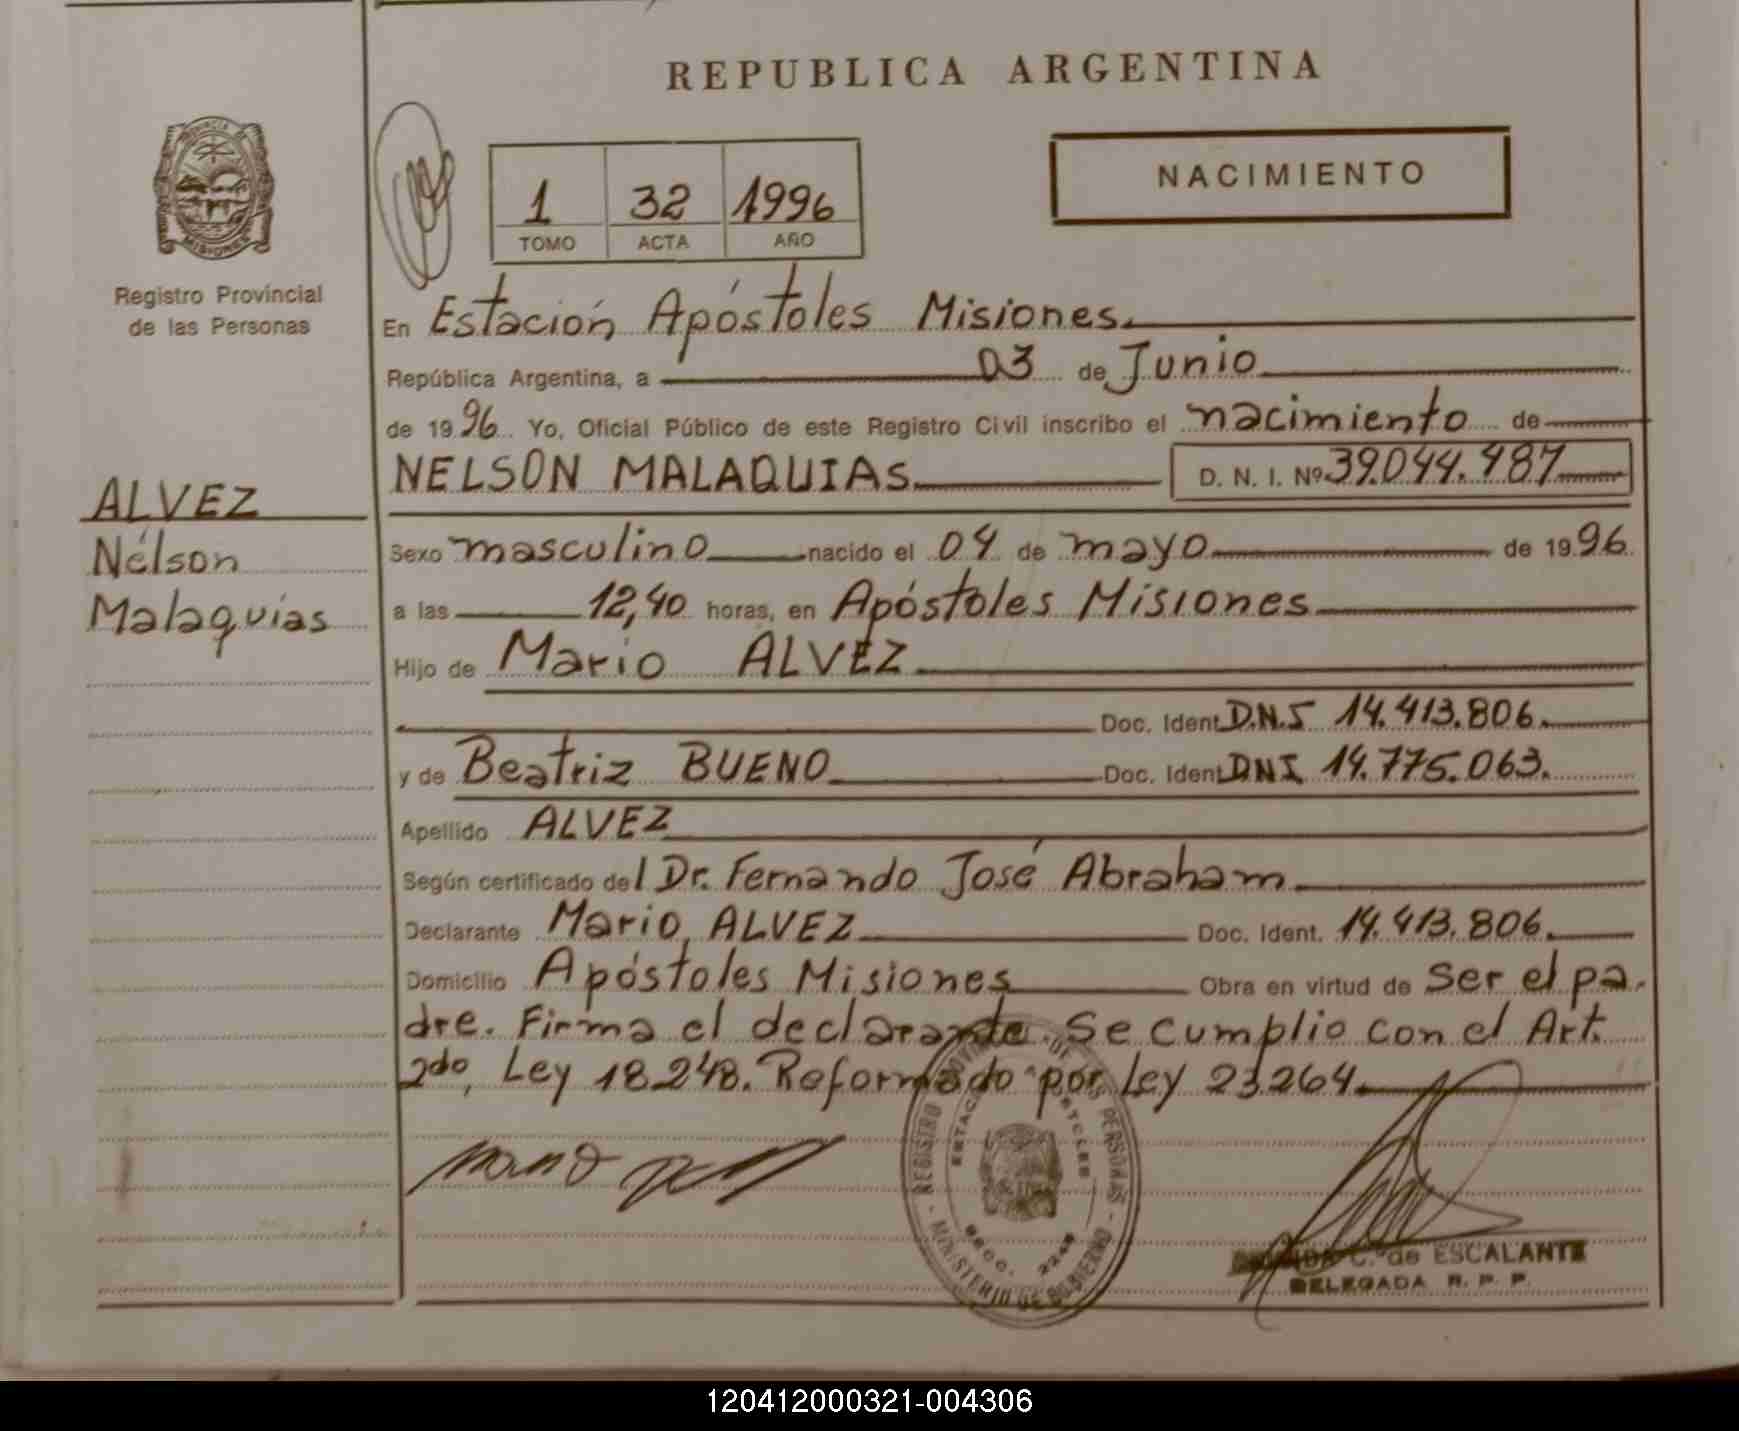 REPUBLICA ARGENTINA
PROVINCIA DE
MISIONES
Registro Provincial
de las Personas
1 32 1996
TOMO ACTA AÑO
NACIMIENTO
En Estación Apóstoles Misiones.
República Argentina, a 03 de Junio
de 1996. Yo, Oficial Público de este Registro Civil inscribo el nacimiento de
NELSON MALAQUIAS D. N. I. Nº 39.044.487
ALVEZ
Nélson
Malaquías
Sexo masculino nacido el 04 de mayo de 1996
a las 12,40 horas, en Apóstoles Misiones
Hijo de Mario ALVEZ
Doc. Ident. D.N.I 14.413.806.
y de Beatriz BUENO Doc. Ident. DNI 14.775.063.
Apellido ALVEZ
Según certificado del Dr. Fernando José Abraham
Declarante Mario ALVEZ Doc. Ident. 14.413.806.
Domicilio Apóstoles Misiones Obra en virtud de Ser el pa-
dre. Firma el declarante. Se cumplio con el Art.
2do, Ley 18.248. Reformado por Ley 23.264.
REGISTRO DE LAS PERSONAS
MINISTERIO DE GOBIERNO
C. de ESCALANTE
DELEGADA R. P. P.
120412000321-004306